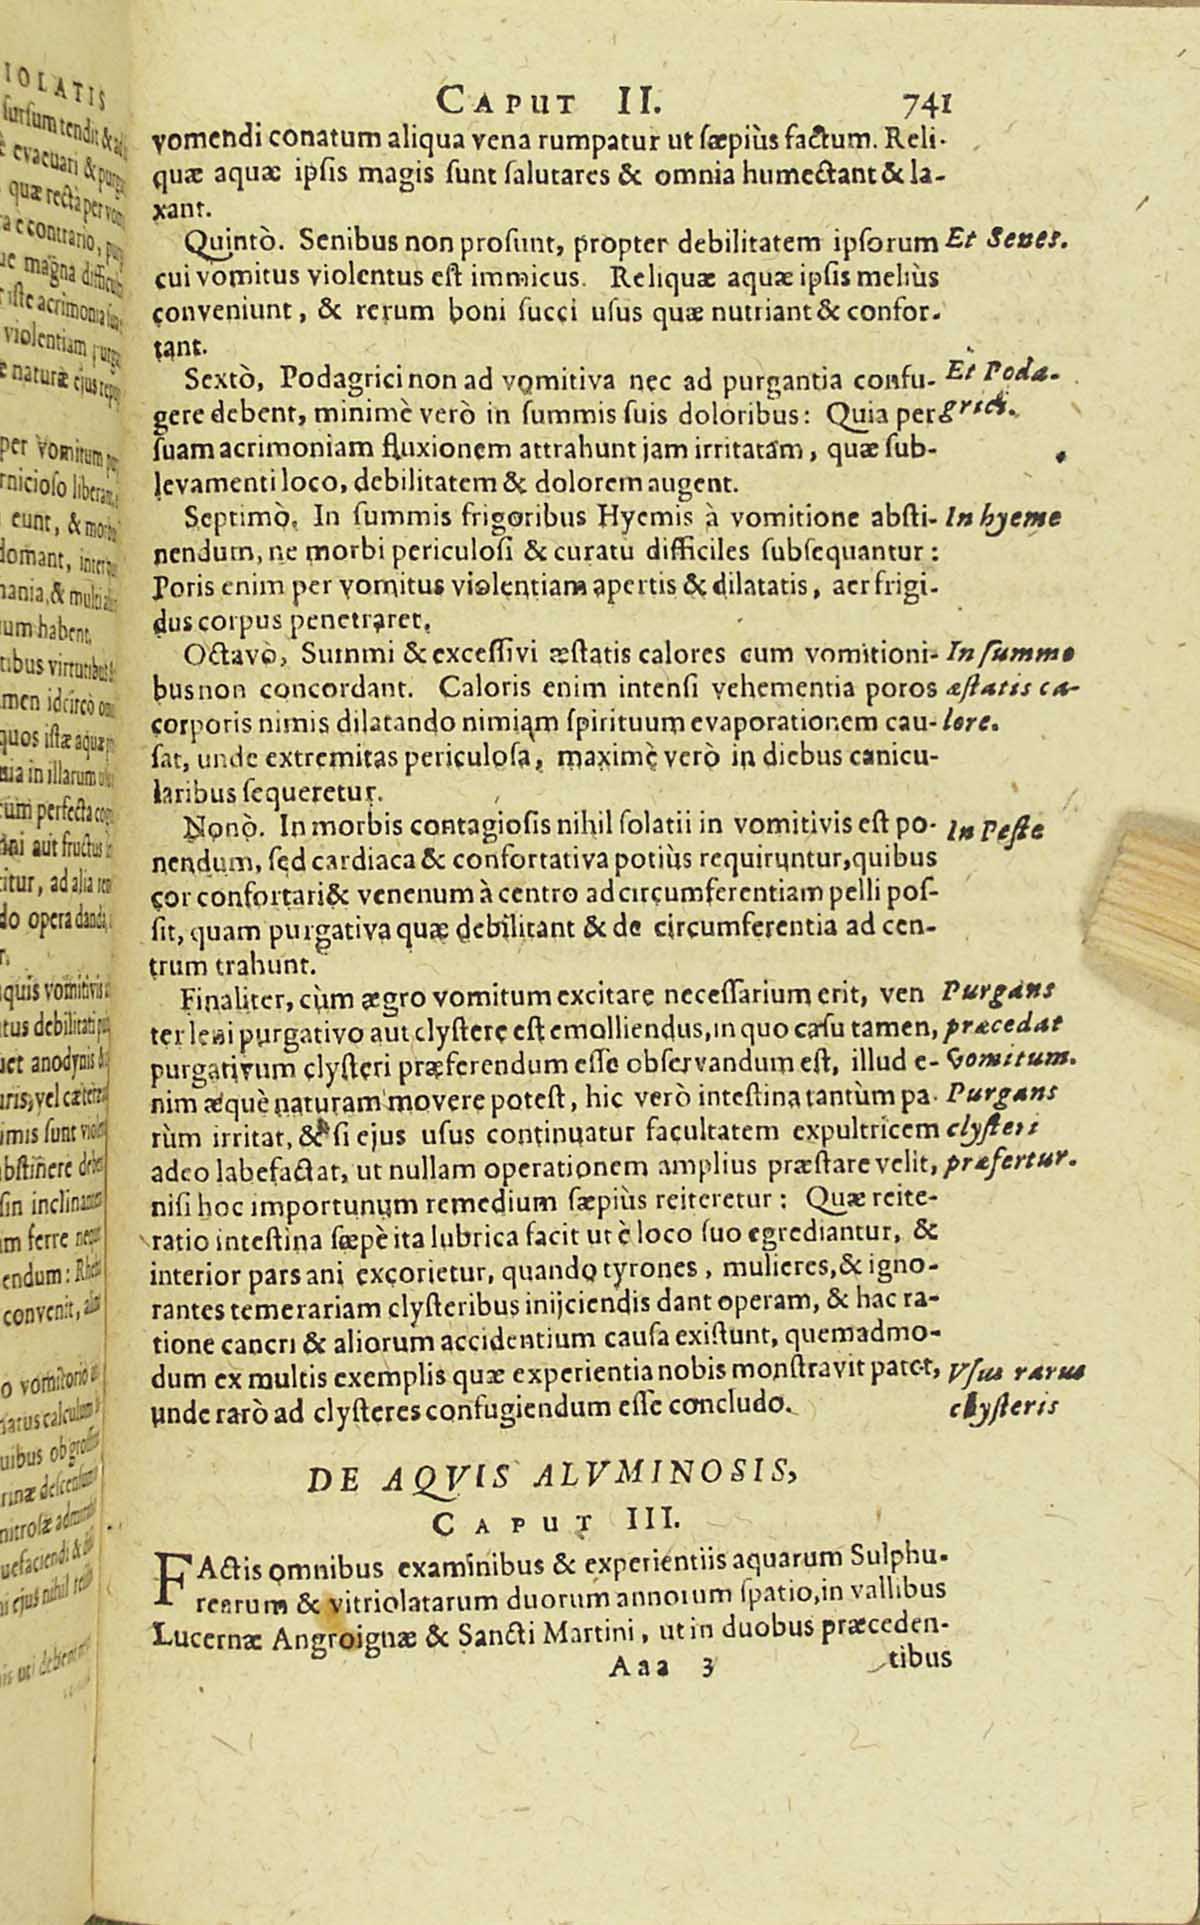 CAPUT II. 741
vomendi conatum aliqua vena rumpatur ut sæpiùs factum. Reli-
quæ aquæ ipsis magis sunt salutares & omnia humectant & la-
xant.
Quintò. Senibus non prosunt, propter debilitatem ipsorum
Et Senes.
cui vomitus violentus est immicus. Reliquæ aquæ ipsis meliùs
conveniunt, & rerum boni succi usus quæ nutriant & confor-
tant.
Sextò, Podagrici non ad vomitiva nec ad purgantia confu-
Et Poda-
gere debent, minimè verò in summis suis doloribus: Quia per
grici.
suam acrimoniam fluxionem attrahunt jam irritatam, quæ sub-
levamenti loco, debilitatem & dolorem augent.
Septimò. In summis frigoribus Hyemis à vomitione absti-
In hyeme
nendum, ne morbi periculosi & curatu difficiles subsequantur:
Poris enim per vomitus violentiam apertis & dilatatis, aer frigi-
dus corpus penetraret.
Octavò, Summi & excessivi æstatis calores cum vomitioni-
In summo
bus non concordant. Caloris enim intensi vehementia poros
æstatis ca-
corporis nimis dilatando nimiam spirituum evaporationem cau-
lore.
sat, unde extremitas periculosa, maximè verò in diebus canicu-
laribus sequeretur.
Nonò. In morbis contagiosis nihil solatii in vomitivis est po-
In Peste
nendum, sed cardiaca & confortativa potiùs requiruntur, quibus
cor confortari & venenum à centro ad circumferentiam pelli pos-
sit, quam purgativa quæ debilitant & de circumferentia ad cen-
trum trahunt.
Finaliter, cùm ægro vomitum excitare necessarium erit, ven
Purgans
ter leni purgativo aut clystere est emolliendus, in quo casu tamen,
præcedat
purgativum clysteri præferendum esse observandum est, illud e-
Vomitum.
nim æquè naturam movere potest, hic verò intestina tantùm pa-
Purgans
rùm irritat, & si ejus usus continuatur facultatem expultricem
clysteri
adeo labefactat, ut nullam operationem amplius præstare velit,
præfertur.
nisi hoc importunum remedium sæpiùs reiteretur: Quæ reite-
ratio intestina sæpè ita lubrica facit ut è loco suo egrediantur, &
interior pars ani excorietur, quando tyrones, mulieres, & igno-
rantes temerariam clysteribus inijciendis dant operam, & hac ra-
tione cancri & aliorum accidentium causa existunt, quemadmo-
dum ex multis exemplis quæ experientia nobis monstravit patet,
Usus rarus
unde rarò ad clysteres confugiendum esse concludo.
clysteris
DE AQVIS ALVMINOSIS,
CAPUT III.
FActis omnibus examinibus & experientiis aquarum Sulphu-
rearum & vitriolatarum duorum annorum spatio, in vallibus
Lucernæ Angroignæ & Sancti Martini, ut in duobus præceden-
Aaa 3 tibus